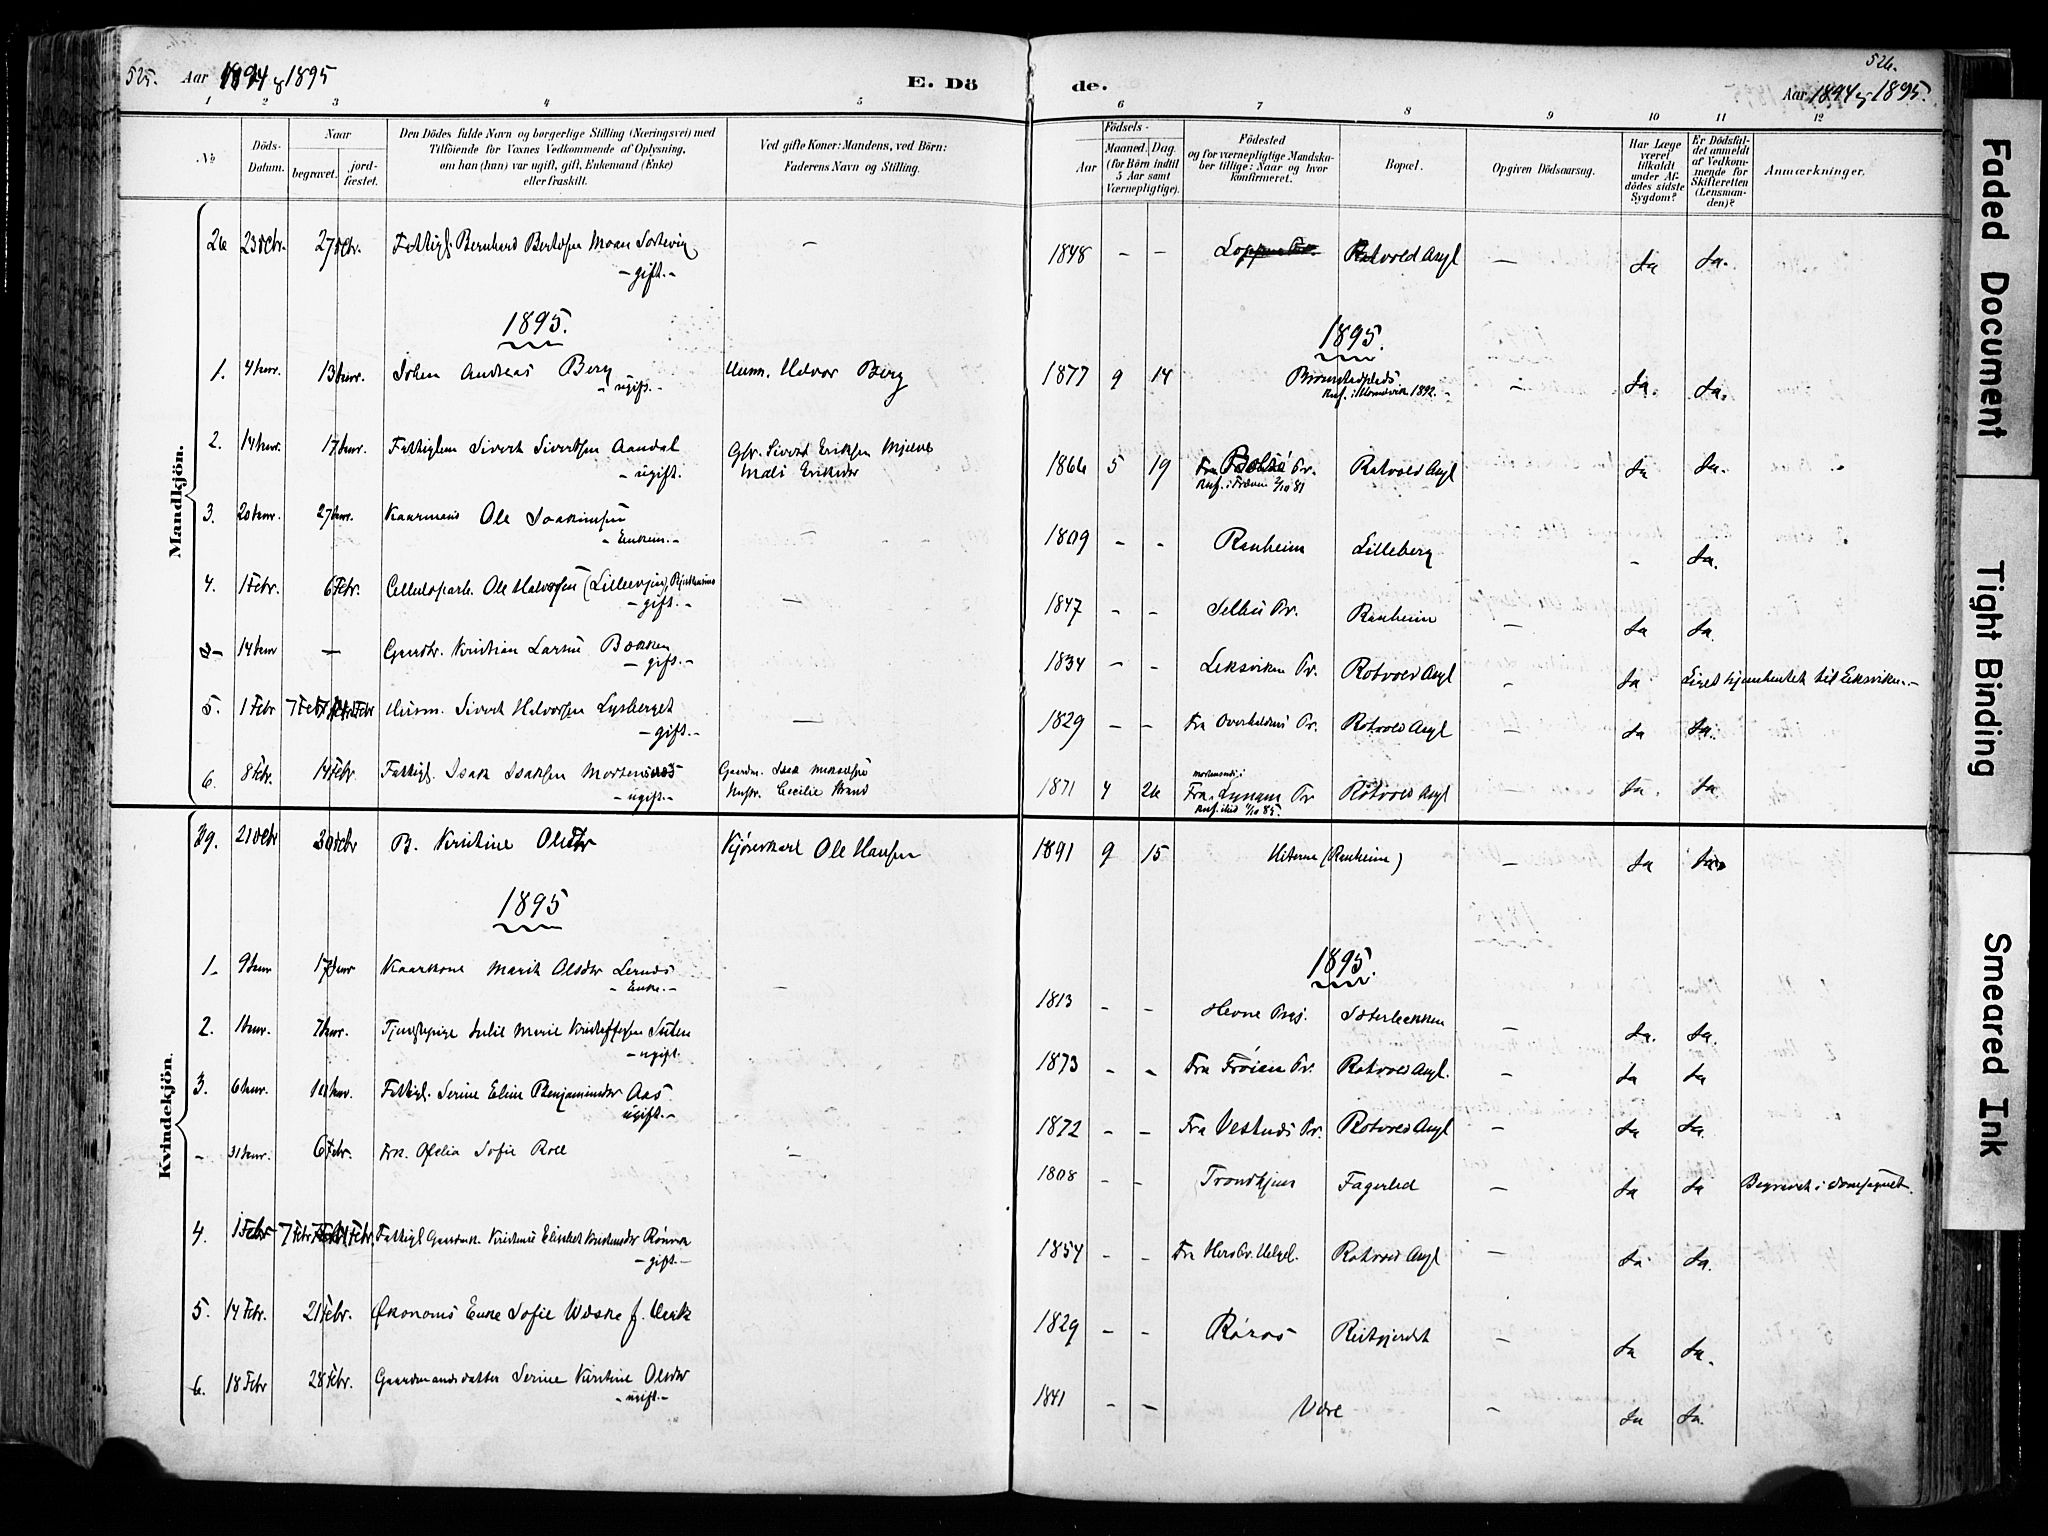 525. Aar 1894 & 1895
E. Dö
de.
526.
Aar 1894 & 1895.
1 2 3 4 5
6 7 8 9 10 11 12
No
Döds-Datum.
Naar
begravet.
jord-fæstet.
Den Dödes fulde Navn og borgerlige Stilling (Næringsvei) med
Tilföiende for Voxnes Vedkommende af Oplysning,
om han (hun) var ugift, gift, Enkemand (Enke)
eller fraskilt.
Ved gifte Koner: Mandens, ved Börn:
Faderens Navn og Stilling.
Födsels-
Aar
Maaned. Dag.
(for Börn indtil
5 Aar samt
Værnepligtige).
Födested
og for værnepligtige Mandska-
ber tillige: Naar og hvor
konfirmeret.
Bopæl.
Opgiven Dödsaarsag.
Har Læge
været
tilkaldt
under Af-
dödes sidste
Sygdom?
Er Dödsfal-
det anmeldt
af Vedkom-
mende for
Skifteretten
(Lensman-
den)?
Anmærkninger.
Mandkjön.
26 23 Dcbr. 27 Dcbr. Fattigl. Bernhard Bertesen Moan
- gift. -
–
1848 – – Rotvold Asyl – Ja Ja.
1895.
1895.
1. 4 Janr. 13 Janr. Johan Andreas Berg
- ugift. -
Husm. Halvor Berg
1877 9 14
1892. -
– Ja. Ja.
2. 14 Janr. 17 Janr. Fattiglem Sivert Sivertsen Aandal
- ugift.
Gbr. Sivert Eriksen
1866 5 19 Fra Bolsö Pr.
Knf. i Fræna 2/10 81
Rotvold Asyl Ja Ja.
3. 20 Janr. 27 Janr. Kaarmand Ole Joakimsen
- Enkem. -
–
1809 – – Ranheim Lilleberg – Ja.
4. 1 Febr. 6 Febr. Ole Halvorsen
- gift. -
–
1847 – – Selbu Pr. Ranheim – Ja Ja.
- 14 Janr – Gaardbr. Kristian Larsen Bakken
- gift. -
1834 – – Leksviken Pr. Rotvold Asyl – Ja Liget hjemhentet til Leksviken. -
5. 1 Febr 7 Febr Husm. Sivert Halvorsen Lysberget
- gift. -
–
1829 – – Fra Overhaldens Pr. Rotvold Asyl – Ja Ja.
6. 8 Febr. 14 Febr. Fattigl. Isak Isaksen Mortensnes
- ugift. -
Gaardm. Isak Mikkelsen
Hustr. Cecilie
1871 4 26 Fra Lyngen Pr
Rotvold Asyl Ja. Ja
Kvindekjön.
29. 21 Dcbr 30 Dcbr B. Kristine Olsdtr Kjörekarl Ole Hansen
1891 9 15 (Ranheim) – Ja Ja.
1895
1895.
1. 9 Janr 17 Janr Kaarkone Marit Olsdtr
- Enke. -
–
1813 – – Hevne Prgj. Sæterbakken – Ja. Ja.
2. 1 Janr. 7 Janr. Tjenestepige Julie Marie Kristoffersen
- ugift.
1873 – – Fra Fröien Pr. Rotvold Asyl. – Ja Ja
3. 6 Janr. 10 Janr. Fattigl. Serine Eline Benjaminsdtr Aas
ugift. -
1872 – – Fra Vestnes Pr. Rotvold Asyl – Ja Ja.
- 31 Janr. 6 Febr. Frk. Ofelia Sofie Roll –
1808 – – Trondhjem Fagerlid – Ja Ja Begravet i Domsognet.
4. 1 Febr 7 Febr Fattigl Gaardmk.
- gift. -
1854 – – Fra Herö Pr. Helgel. Rotvold Asyl – Ja Ja.
5. 14 Febr. 21 Febr. Økonoms Enke Sofie Wæske f.
1829 – – Röros Reitgjerdet – Ja Ja.
6. 18 Febr 28 Febr. Gaardmandsdatter Serine Kirstine Olsdtr
- ugift. -
1841 – – Være – Ja Ja.
Faded Document
Tight Binding
Smeared Ink